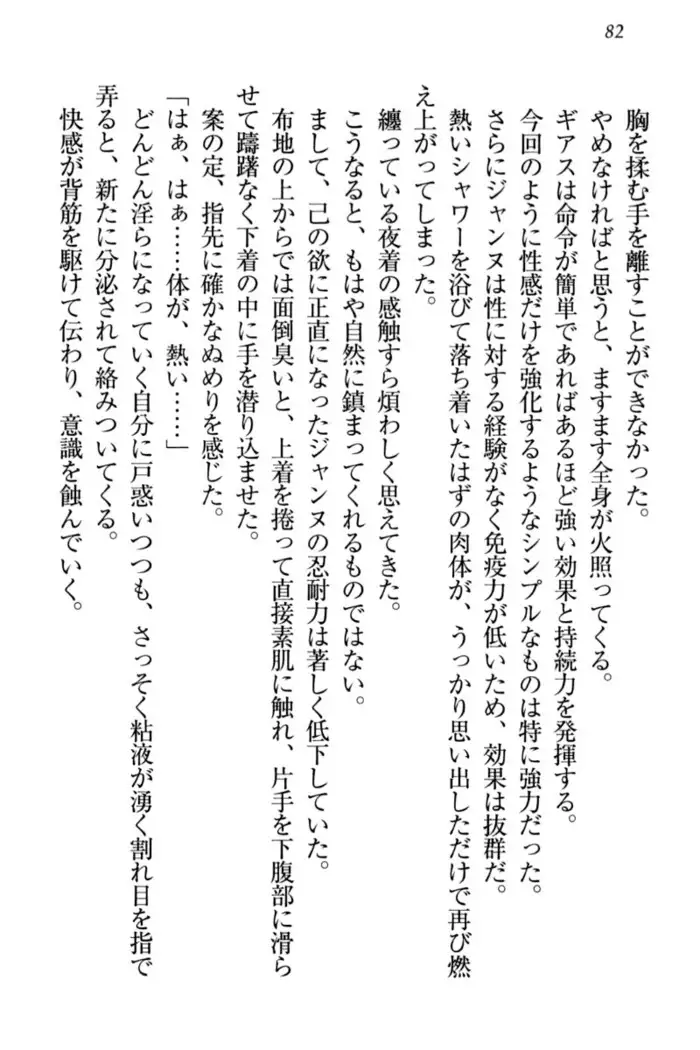 82
胸を揉む手を離すことができなかった。
やめなければと思うと、ますます全身が火照ってくる。
ギアスは命令が簡単であればあるほど強い効果と持続力を発揮する。
今回のように性感だけを強化するようなシンプルなものは特に強力だった。
さらにジャンヌは性に対する経験がなく免疫力が低いため、効果は抜群だ。
熱いシャワーを浴びて落ち着いたはずの肉体が、うっかり思い出しただけで再び燃
え上がってしまった。
纏っている夜着の感触すら煩わしく思えてきた。
こうなると、もはや自然に鎮まってくれるものではない。
まして、己の欲に正直になったジャンヌの忍耐力は著しく低下していた。
布地の上からでは面倒臭いと、上着を捲って直接素肌に触れ、片手を下腹部に滑ら
せて躊躇なく下着の中に手を潜り込ませた。
案の定、指先に確かなぬめりを感じた。
「はぁ、はぁ……体が、熱い……」
どんどん淫らになっていく自分に戸惑いつつも、さっそく粘液が湧く割れ目を指で
弄ると、新たに分泌されて絡みついてくる。
快感が背筋を駆けて伝わり、意識を蝕んでいく。